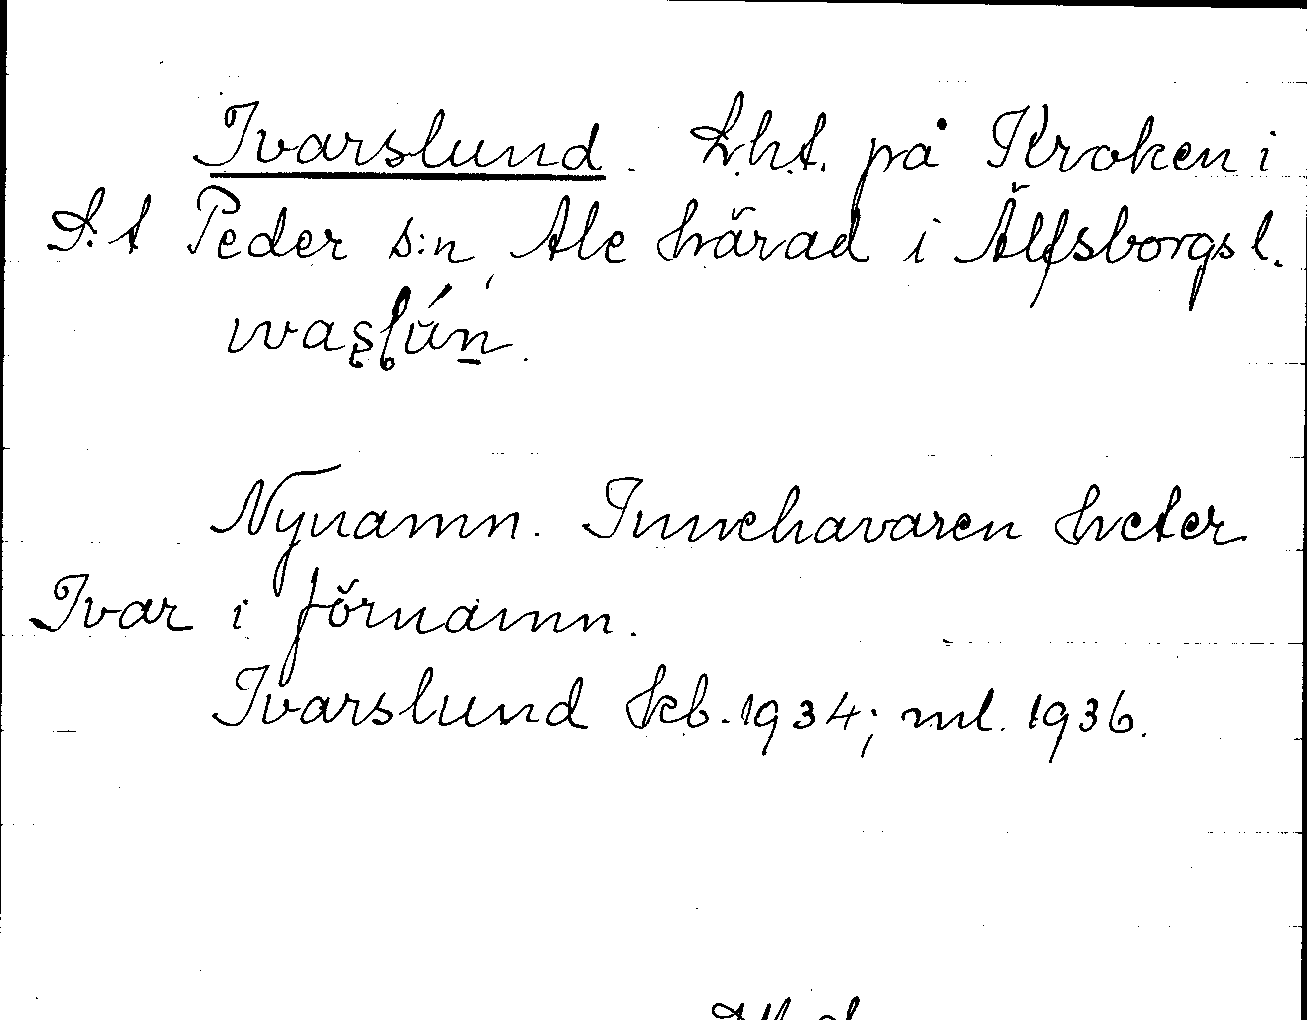 Ivarslund. Lht. på Kroken i
S:t Peder s:n, Ale härad i Älfsborgs l.
Nynamn. Innehavaren heter
Ivar i förnamn.
Ivarslund Kb. 1934; ml. 1936.